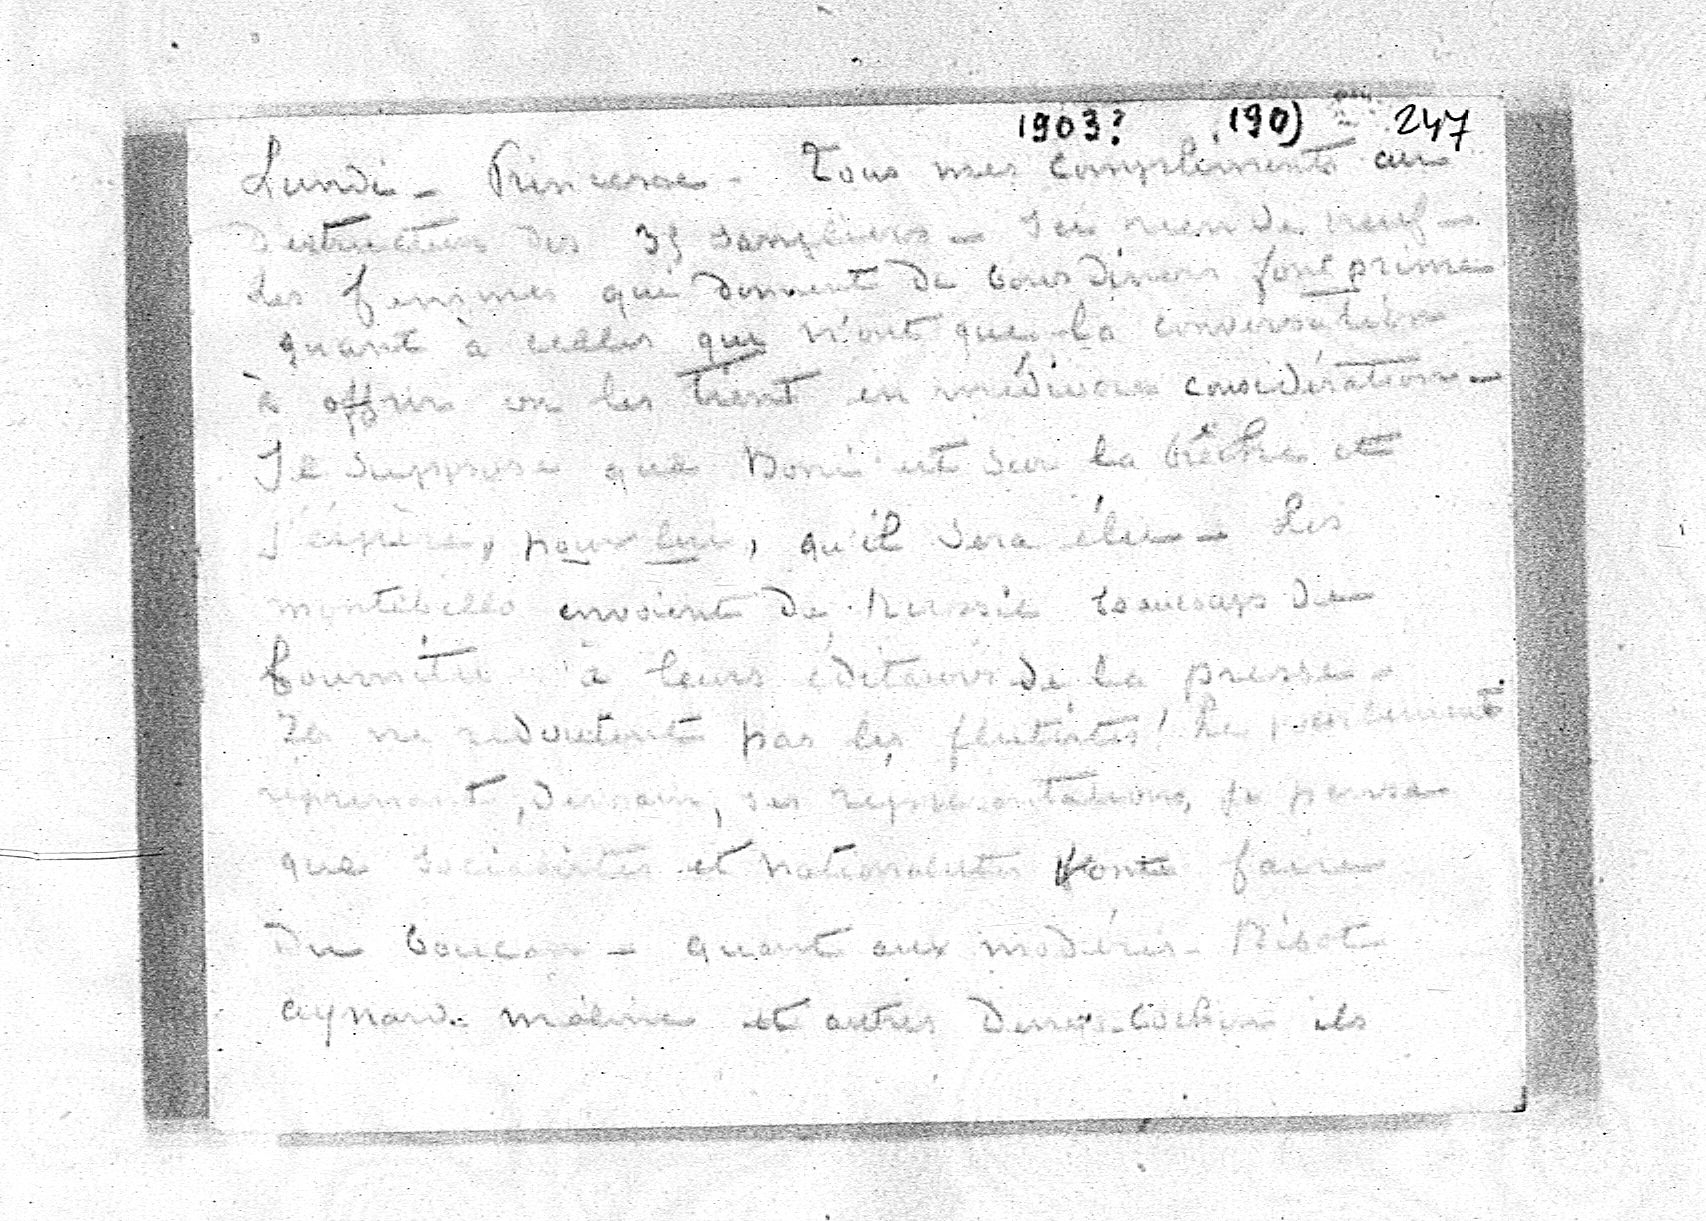 1903? 190) 247
Lundi - Princesse - Tous mes compliments au
destructeur des 35 sangliers - Ici rien de neuf -
Les femmes qui donnent de bons diners font prime
quant à celles qui n'ont que la conversation
à offrir on les tient en médiocre considération -
Je suppose que Boni est sur la brêche et
j'espère, pour lui, qu'il sera élu - Les
montebello envoient de Russie du
à leurs de la presse -
Ils ne redoutent pas les ! Le parlement
reprenant, demain, ses représentations, je pense
que socialistes et nationalistes vont faire
du boucan - quant aux modérés - Ribot
aynard - méline et autres Denys-Cochin ils